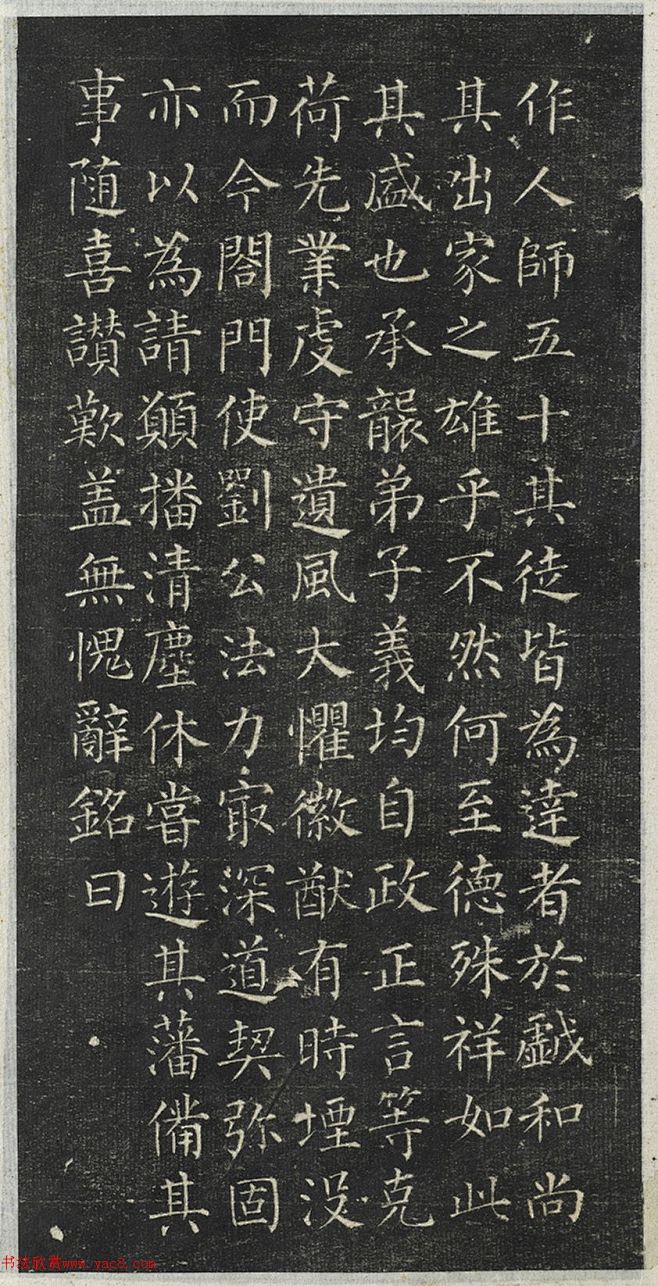 作人師五十其徒皆為達者於戲和尚
其出家之雄乎不然何至德殊祥如此
其盛也承襲弟子義均自政正言等克
荷先業虔守遺風大懼徽猷有時堙没
而今閤門使劉公法力㝡深道契弥固
亦以為請願播清塵休甞遊其藩備其
事随喜讃歎盖無愧辭銘曰
书法欣赏www.yac8.com